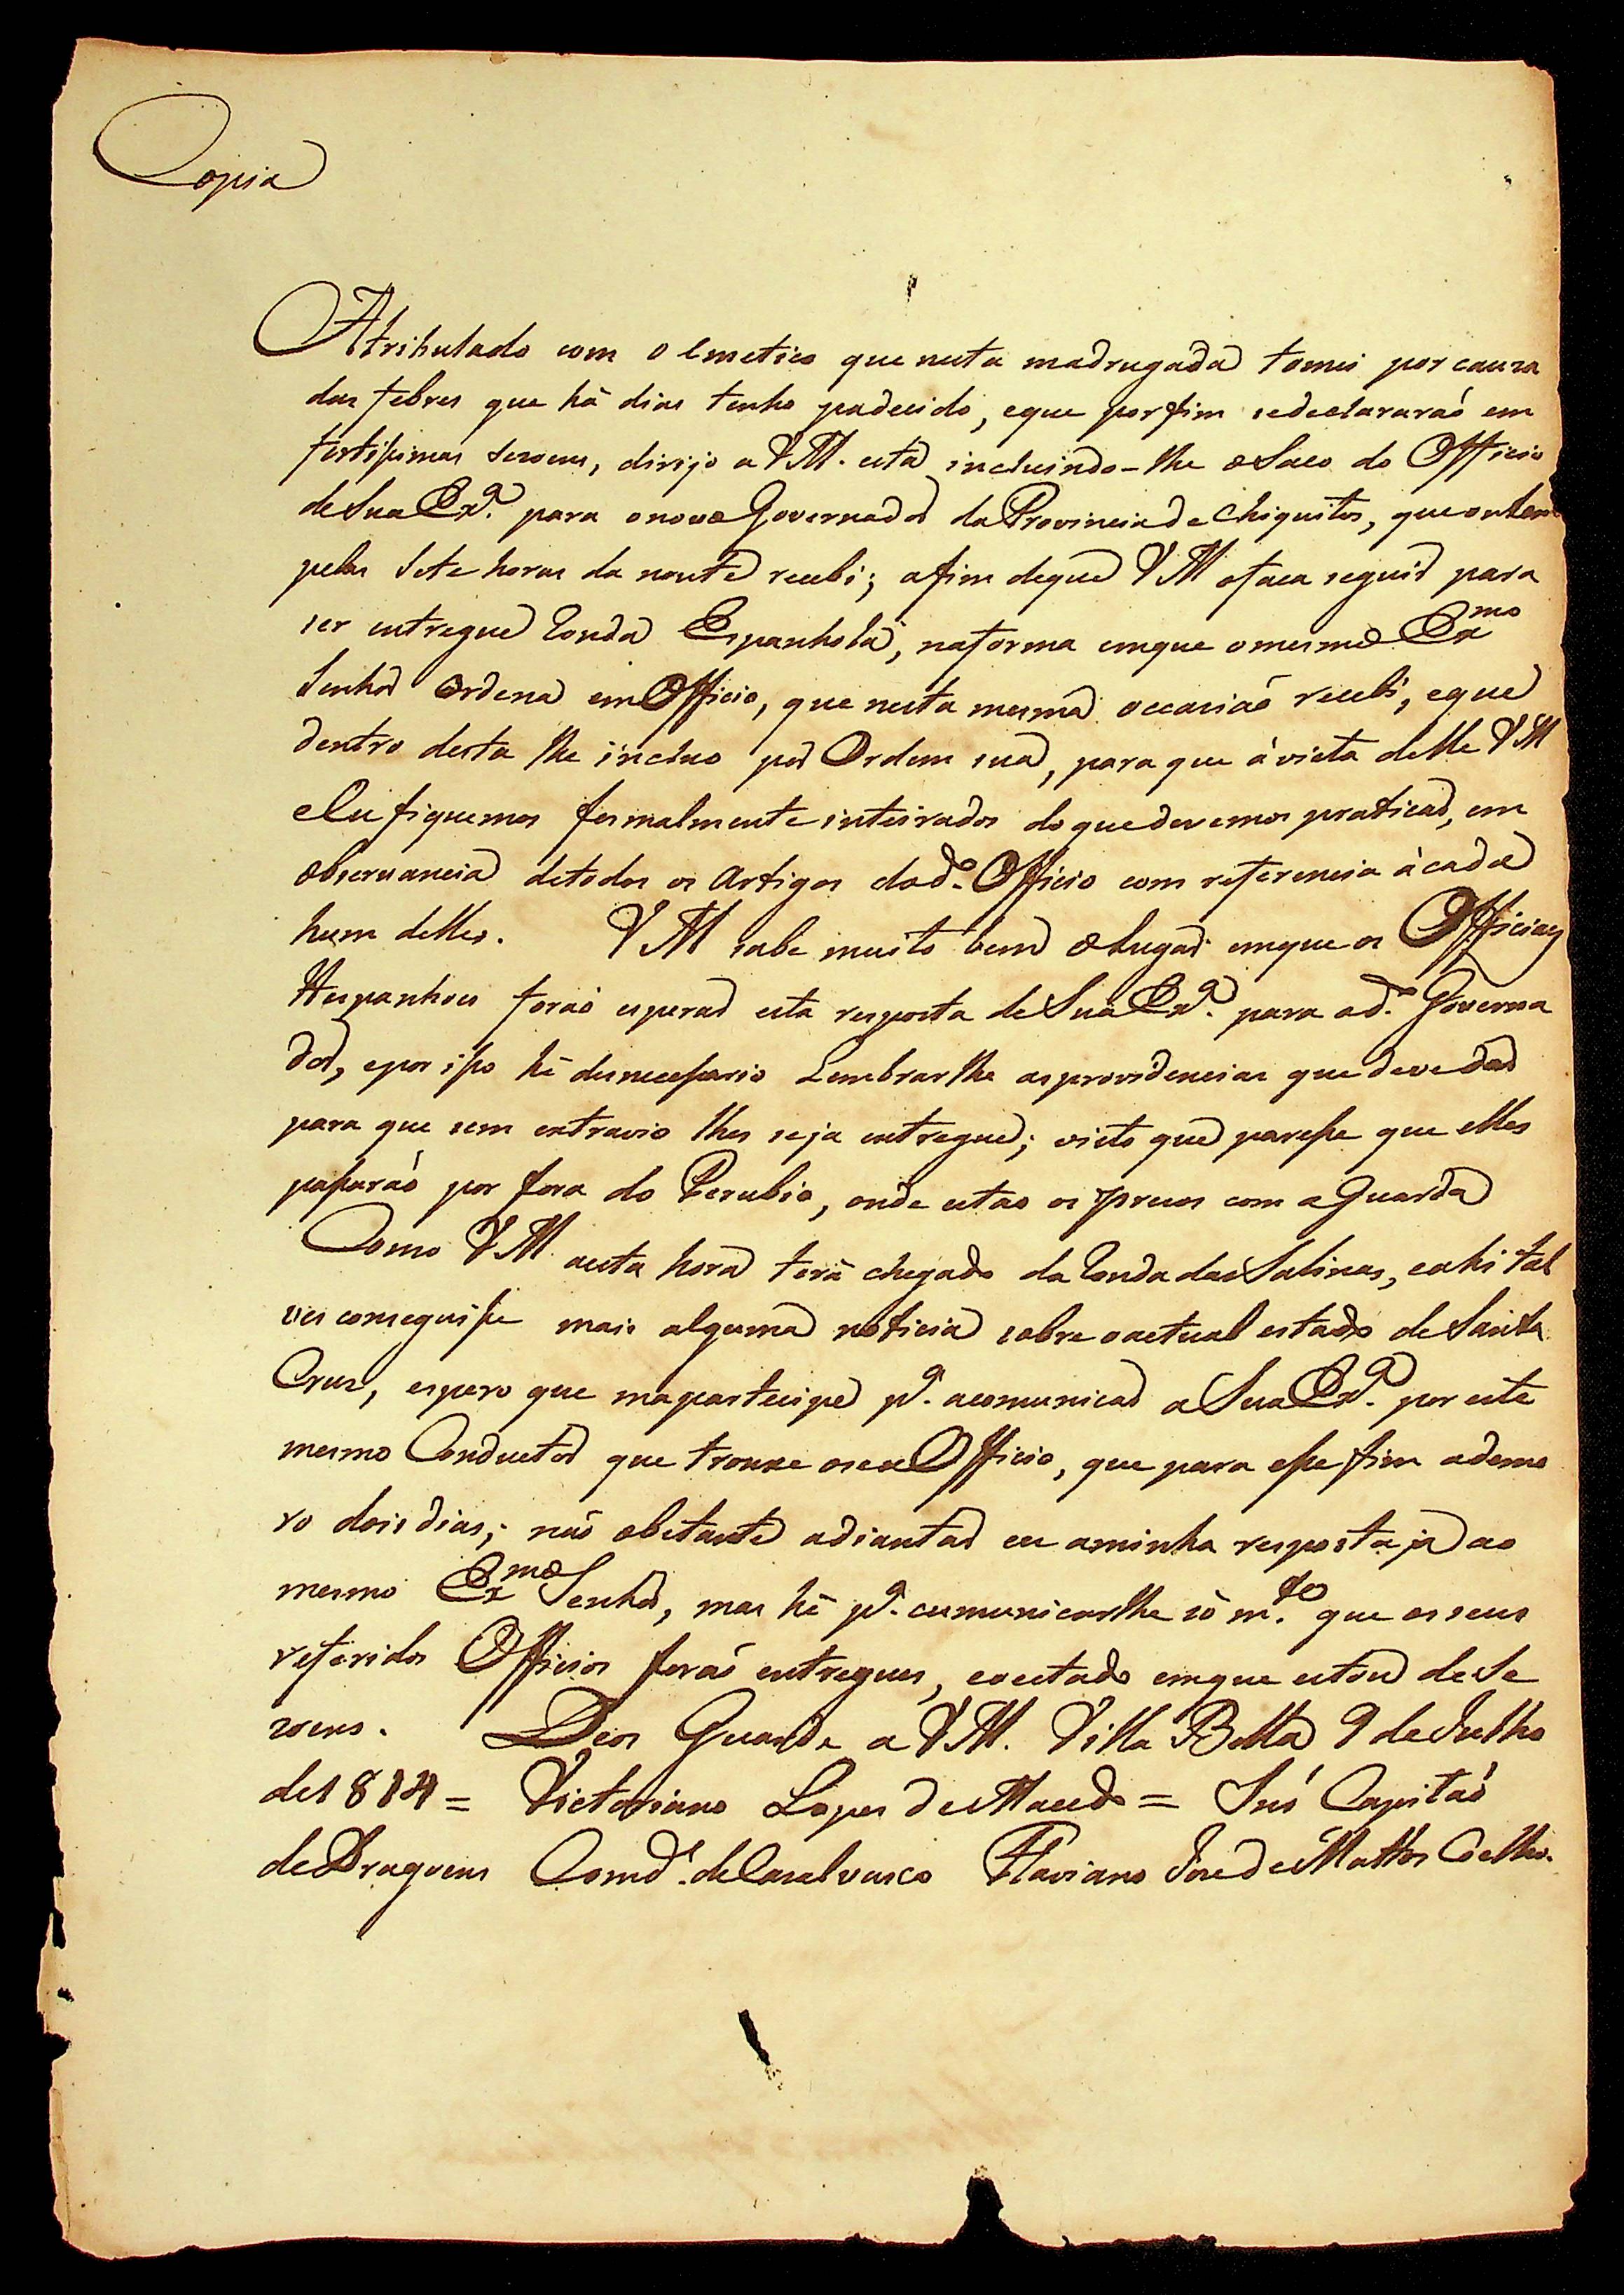 Copia
Atribulado com o Emetico que nesta madrugada tomei por cauza
das febres que hâ dias tenho padecido, eque porfim sedeclararaõ em
fortissimas sezoens, dirijo a VM. esta incluindo-lhe oSaco do Officio
deSua Exª. para onovo Governador daProvincia de Chiquitos, que ontem
pelas Sete horas da noute recebi; afim deque VM ofaca seguir para
ser entregue Ronda Espanhola, naforma emque omesmo Exmo
Senhor Ordena em Officio, que nesta mesma occasiaõ recebi, eque
dentro desta lhe incluo por Ordem sua, para que á vista delle VM
eEu fiquemos formalmente inteirados doque devemos praticar, em
observancia detodos os Artigos dodº. Officio com referencia àcada
hum delles. VM sabe muito bem oLugar emque os Officiaes
Hespanhoes foraõ esperar esta resposta deSua Exª. para odº. Governa
dor, epor isso hê desnecessario Lembrarlhe asprovidencias que deve dar
para que sem extravio lhes seja entregue; visto que paresse que elles
passaraõ por fora do Perubio, onde estao os prezos com aGuarda
Como VM. aesta hora terâ chegado da Ronda das Salinas, eahi tal
ves conseguisse mais alguma noticia sobre oactual estado de Santa
Cruz, espero que mapartecipe pª. acomunicar a Sua Exª. por este
mesmo Conductor que trouxe oseu Officio, que para esse fim ademo
ro dois dias; naõ obstante adiantar eu aminha resposta ja ao
mesmo Exmo Senhor, mas hê pª. comunicarlhe sò m.to que os seus
referidos Officios foraõ entregues, eoestado emque estou deSe
zoens. Deos Guarde a VM. Villa Bella 9 de Julho
de1814 = Victoriano Lopes de Macedo = Snr Capitaõ
deDragoens Comd.e deCasalvasco Flaviano José de Mattos Coelho.